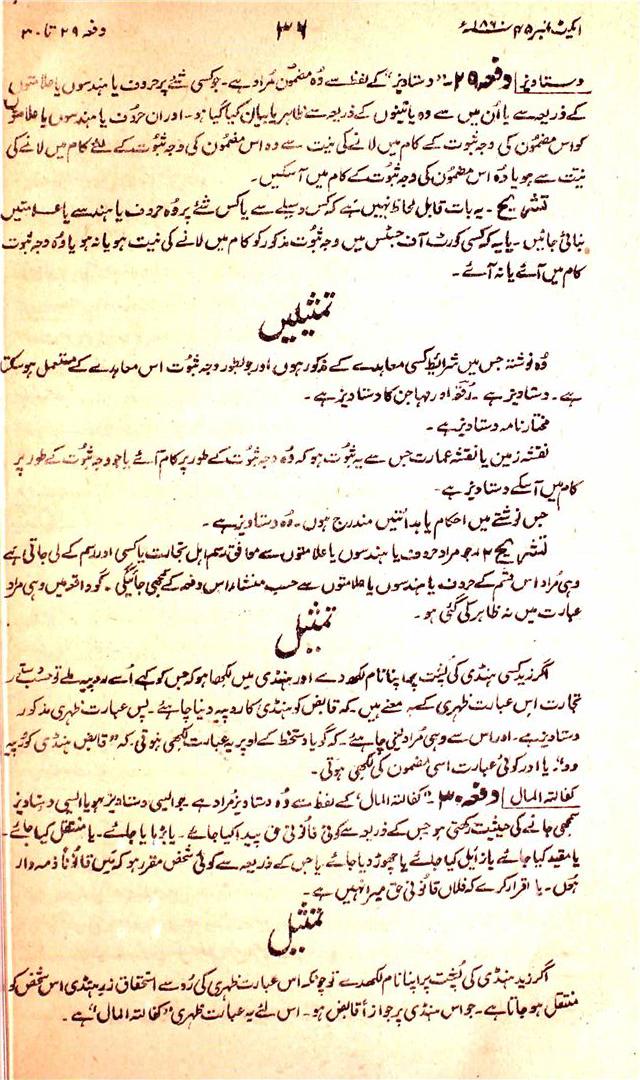 ایکٹ نمبر ۴۵ ۱۸۶۰ء ۳۶ دفعہ ۲۹ تا ۳۰
دستاویز دفعہ ۲۹۔ "دستاویز" کے لفظ سے وُہ مضمون مُراد ہے۔ جو کسی شئے پر حروف یا ہندسوں یا علامتوں
کے ذریعہ سے یا اُن میں سے دو یا تینوں کے ذریعہ سے ظاہر یا بیان کیا گیا ہو۔ اور ان حروف یا ہندسوں یا علامتوں
کو اس مضمون کی وجہ ثبوت کے کام میں لانے کی نیت سے وہ اس مضمون کی وجہ ثبوت کے لئے کام میں لانے کی
نیت سے ہو یا وُہ اس مضمون کی وجہ ثبوت کے کام میں آسکیں۔
تشریح ۱۔ یہ بات قابل لحاظ نہیں ہے کہ کس وسیلے سے یا کس شئے پر وُہ حروف یا ہندسے یا علامتیں
بنائی جائیں۔ یا یہ کہ کسی کورٹ آف جسٹس میں وجہ ثبوت مذکور کو کام میں لانے کی نیت ہو یا نہ ہو یا وُہ وجہ ثبوت
کام میں آئے یا نہ آئے۔
تمثیلیں
وُہ نوشتہ جس میں شرائط کسی معاہدے کے مذکور ہوں اور جو بطور وجہ ثبوت اس معاہدے کے مستعمل ہو سکتا
ہے۔ دستاویز ہے۔ رقعہ اور مہاجن کا دستاویز ہے۔
مختار نامہ دستاویز ہے۔
نقشہ زمین یا نقشہ عمارت جس سے یہ ثبوت ہو کہ وُہ وجہ ثبوت کے طور پر کام آئے یا جو وجہ ثبوت کے طور پر
کام میں آسکے دستاویز ہے۔
جس نوشتے میں احکام یا ہدائتیں مندرج ہوں۔ وُہ دستاویز ہے۔
تشریح ۲۔ جو مراد حروف یا ہندسوں یا علامتوں سے موافق رسم اہل تجارت یا کسی اور رسم کے لی جاتی ہے
وہی مُراد اس قسم کے حروف یا ہندسوں یا علامتوں سے حسب منشاء اس دفعہ کے سمجھی جائیگی۔ گو واقعہ میں وہی مراد
عبارت میں نہ ظاہر کی گئی ہو۔
تمثیل
اگر زید کسی ہنڈی کی پُشت پر اپنا نام لکھ دے اور ہنڈی میں لکھا ہو کہ جس کو کہے اُسے روپیہ ملے تو حسب دستور
تجارت اس عبارت ظہری کے یہ معنے ہیں۔ کہ قابض کو ہنڈی کا روپیہ دینا چاہئے۔ پس عبارت ظہری مذکور
دستاویز ہے۔ اور اس سے وہی مُراد لینی چاہئے۔ کہ گویا دستخط کے اوپر یہ عبارت لکھی ہوتی۔ کہ "قابض ہنڈی کو روپیہ
دو"۔ یا اور کوئی عبارت اسی مضمون کی لکھی ہوتی۔
کفالتہ المال دفعہ ۳۰۔ "کفالتہ المال" کے لفظ سے وُہ دستاویز مُراد ہے۔ جو ایسی دستاویز ہو یا ایسی دستاویز
سمجھی جانے کی حیثیت رکھتی ہو جس کے ذریعہ سے کوئی قانونی حق پیدا کیا جائے۔ یا بڑھایا جائے۔ یا منتقل کیا جائے۔
یا مقید کیا جائے یا زائیل کیا جائے یا چھوڑ دیا جائے۔ یا جس کے ذریعہ سے کوئی شخص مقر ہو کہ میں قانوناً ذمہ وار
ہوں۔ یا اقرار کرے کہ فلاں قانونی حق میرا نہیں ہے۔
تمثیل
اگر زید ہنڈی کی پُشت پر اپنا نام لکھدے تو چونکہ اس عبارت ظہری کی رُو سے استحقاق زرِ ہنڈی اس شخص کو
منتقل ہو جاتا ہے۔ جو اس ہنڈی پر جوازاً قابض ہو۔ اس لئے یہ عبارت ظہری "کفالتہ المال" ہے۔